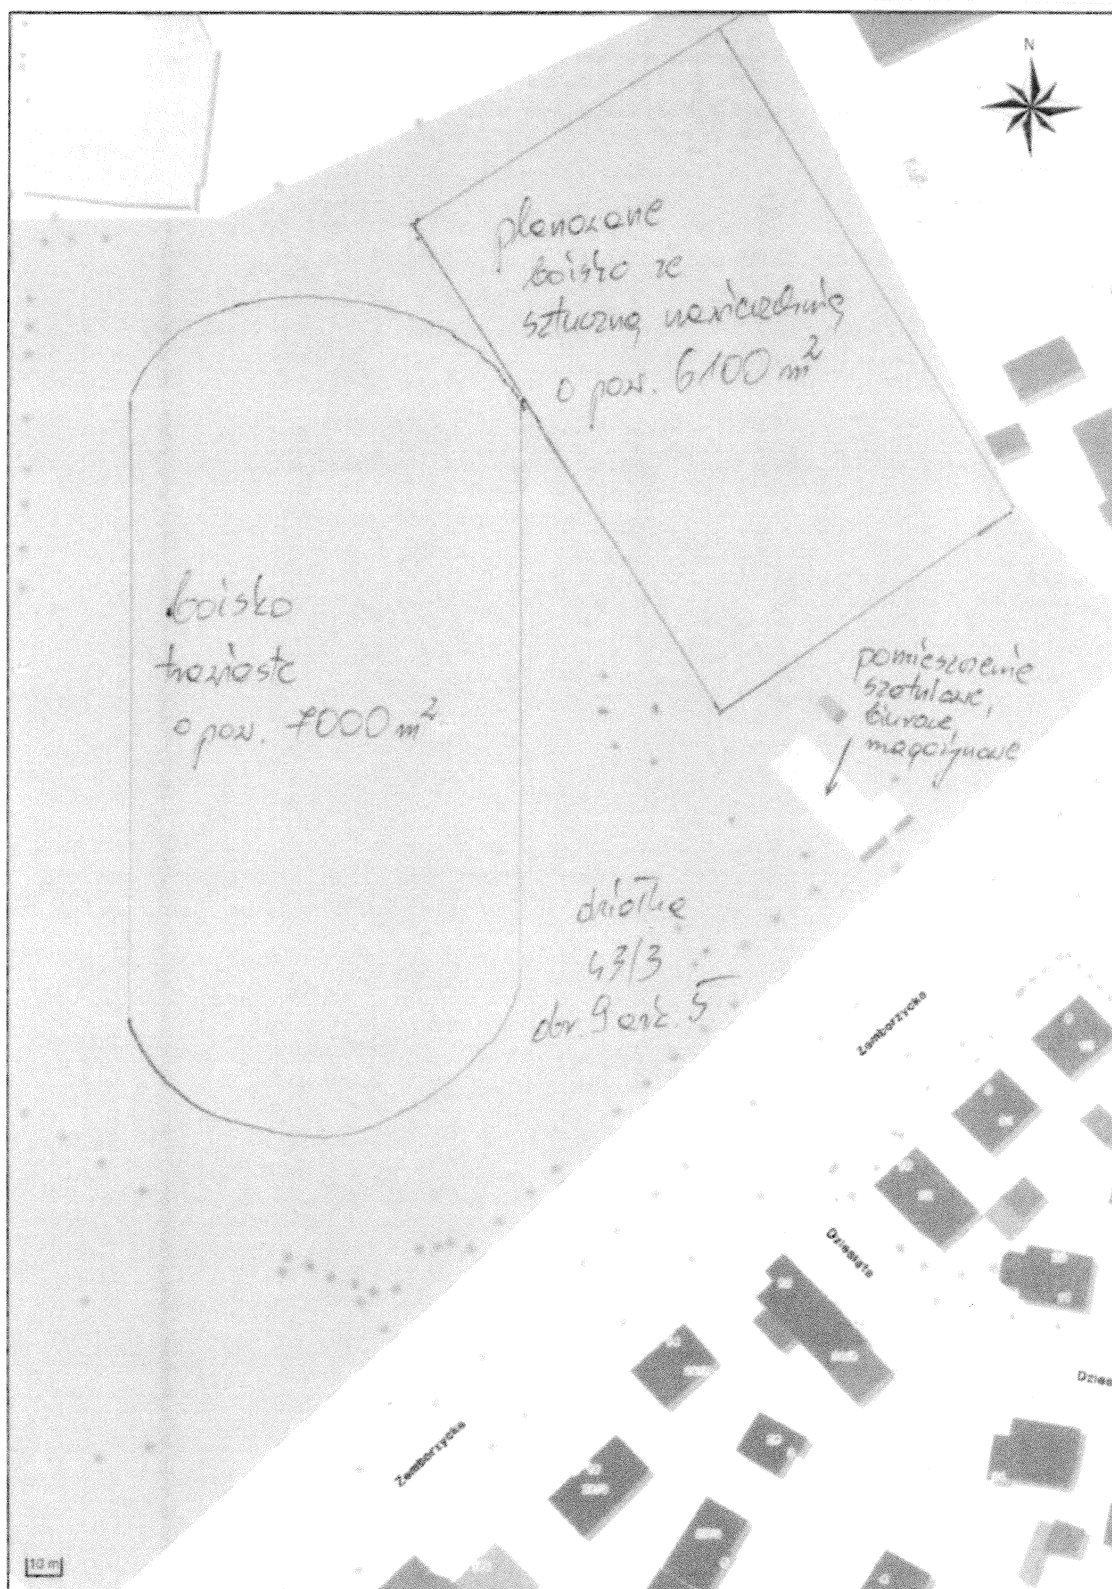 N
planowane
boisko ze
sztuczną nawierzchnią
o pow. 6100 m²
boisko
trawiaste
o pow. 7000 m²
pomieszczenie
szatniowe,
biurowe,
magazynowe
działka
43/3
obr. 9 ark. 5
Zemborzycka
Dziesiąta
Zemborzycka
10 m